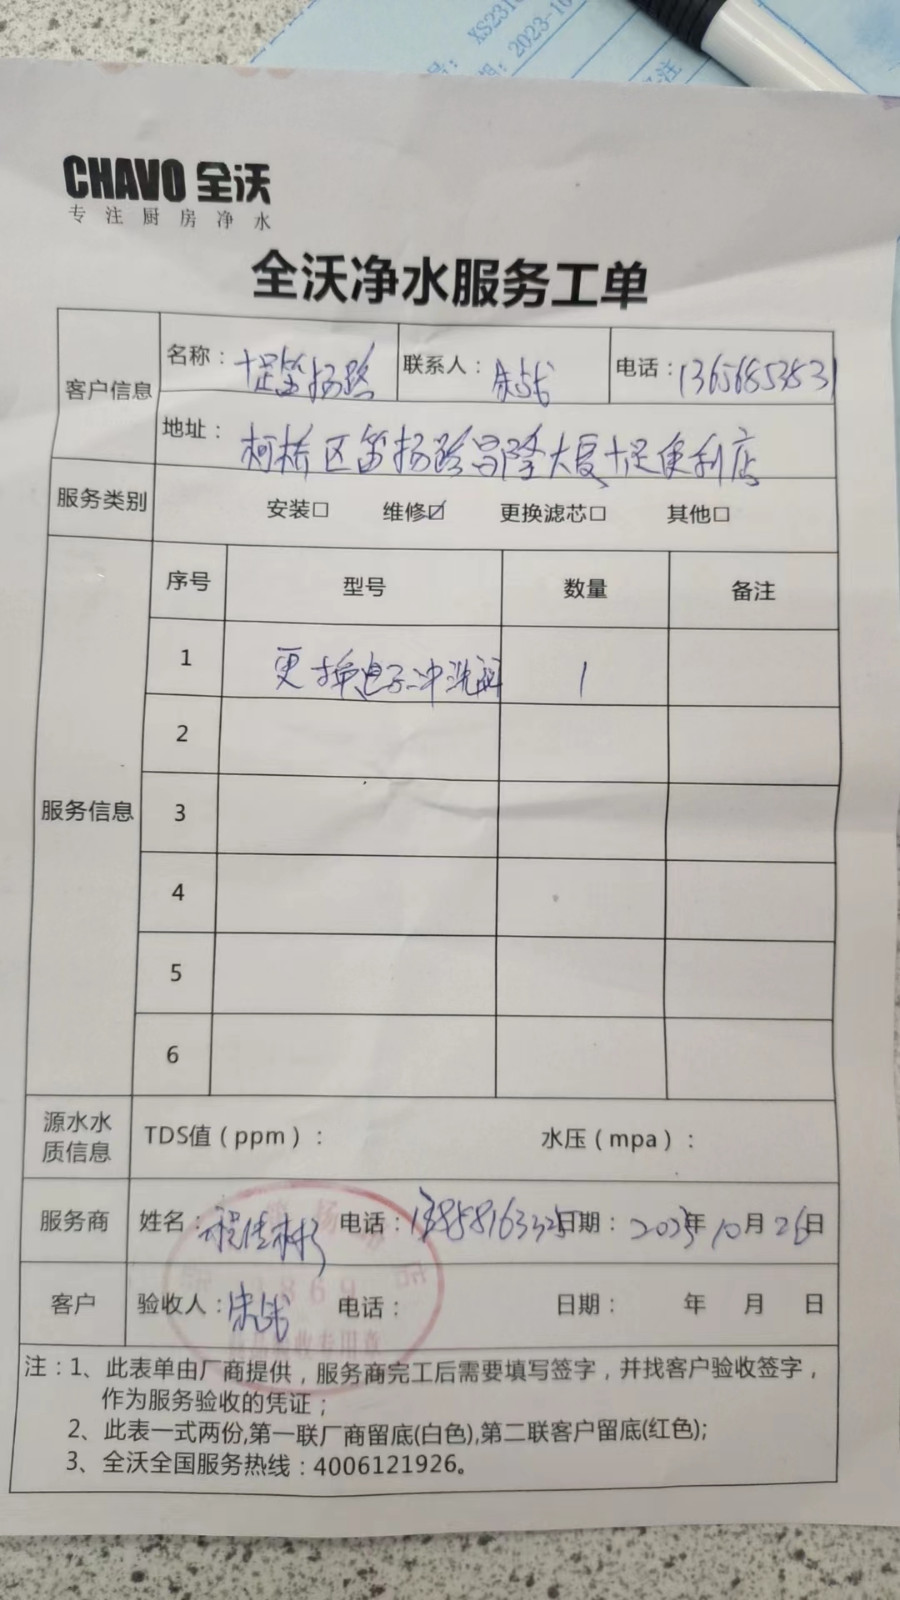 XS231
2023-10
CHAVO 全沃
专注厨房净水
全沃净水服务工单
客户信息
名称：十足笛扬路 联系人： 电话：13656853831
地址：柯桥区笛扬路昌隆大厦十足便利店
服务类别 安装□ 维修☑ 更换滤芯□ 其他□
服务信息
序号 型号 数量 备注
1 更换电子冲洗阀 1
2
3
4
5
6
源水水质信息 TDS值（ppm）： 水压（mpa）：
服务商 姓名：程佳彬 电话： 日期：2023年10月26日
客户 验收人： 电话： 日期： 年 月 日
注：1、此表单由厂商提供，服务商完工后需要填写签字，并找客户验收签字，
作为服务验收的凭证；
2、此表一式两份,第一联厂商留底(白色),第二联客户留底(红色);
3、全沃全国服务热线：4006121926。